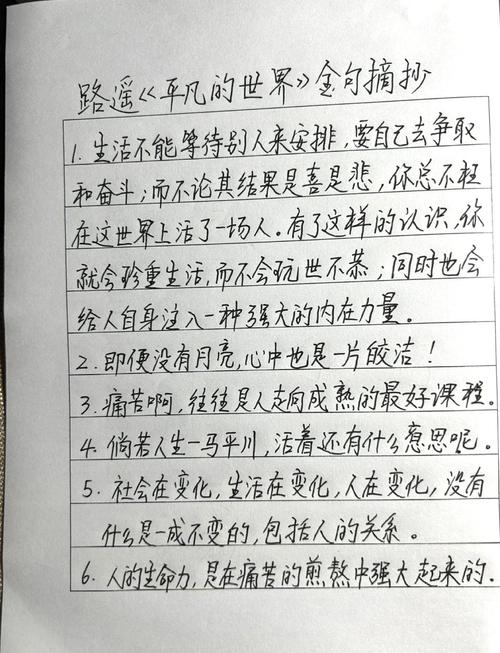 路遥《平凡的世界》金句摘抄
1. 生活不能等待别人来安排，要自己去争取
和奋斗；而不论其结果是喜是悲，你总不枉
在这世界上活了一场人。有了这样的认识，你
就会珍重生活，而不会玩世不恭；同时也会
给人自身注入一种强大的内在力量。
2. 即便没有月亮，心中也是一片皎洁！
3. 痛苦啊，往往是人走向成熟的最好课程。
4. 倘若人生一马平川，活着还有什么意思呢。
5. 社会在变化，生活在变化，人在变化，没有
什么是一成不变的，包括人的关系。
6. 人的生命力，是在痛苦的煎熬中强大起来的.